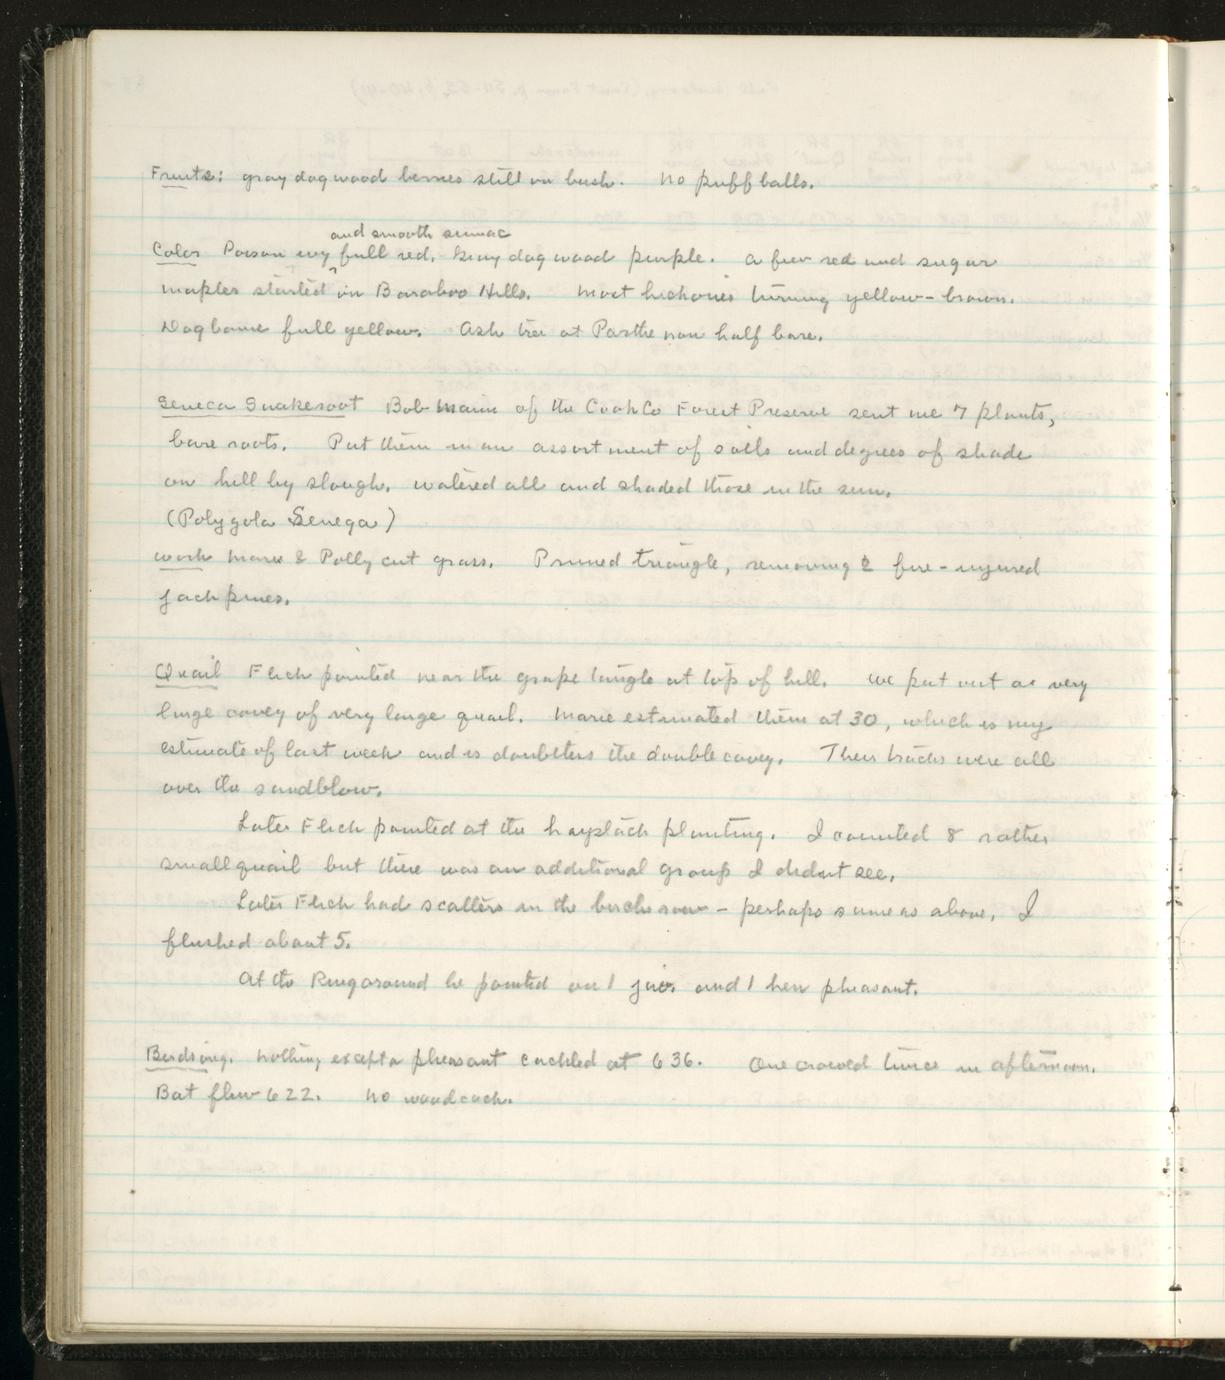 Fruits: gray dogwood berries still on bush. No puffballs.
and smooth sumac
Color Poison ivy ^ full red. Gray dogwood purple. A few red and sugar
maples started in Baraboo Hills. Most hickories turning yellow-brown.
Dogbane full yellow. Ash tree at Parthenon half bare.
Seneca Snakeroot Bob Mann of the Cook Co Forest Preserve sent me 7 plants,
bare roots. Put them in an assortment of soils and degrees of shade
on hill by slough. watered all and shaded those in the sun.
(Polygola Senega)
Work Marie & Polly cut grass. Pruned triangle, removing 2 fire-injured
jackpines.
Quail Flick pointed near the grape tangle at top of hill. We put out a very
large covey of very large quail. Marie estimated them at 30, which is my
estimate of last week and is doubtless the double covey. Their tracks were all
over the sandblow.
Later Flick pointed at the haystack planting. I counted 8 rather
small quail but there was an additional group I didnt see.
Later Flick had scatters in the birch row - perhaps same as above. I
flushed about 5.
At the Ringaround he pointed on 1 juv. and 1 hen pheasant.
Birdsong. Nothing except a pheasant cackled at 6 36. One crowed twice in afternoon.
Bat flew 6 22. No woodcock.